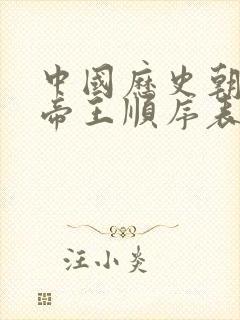 中國歷史朝
帝王順序表
汪小炎